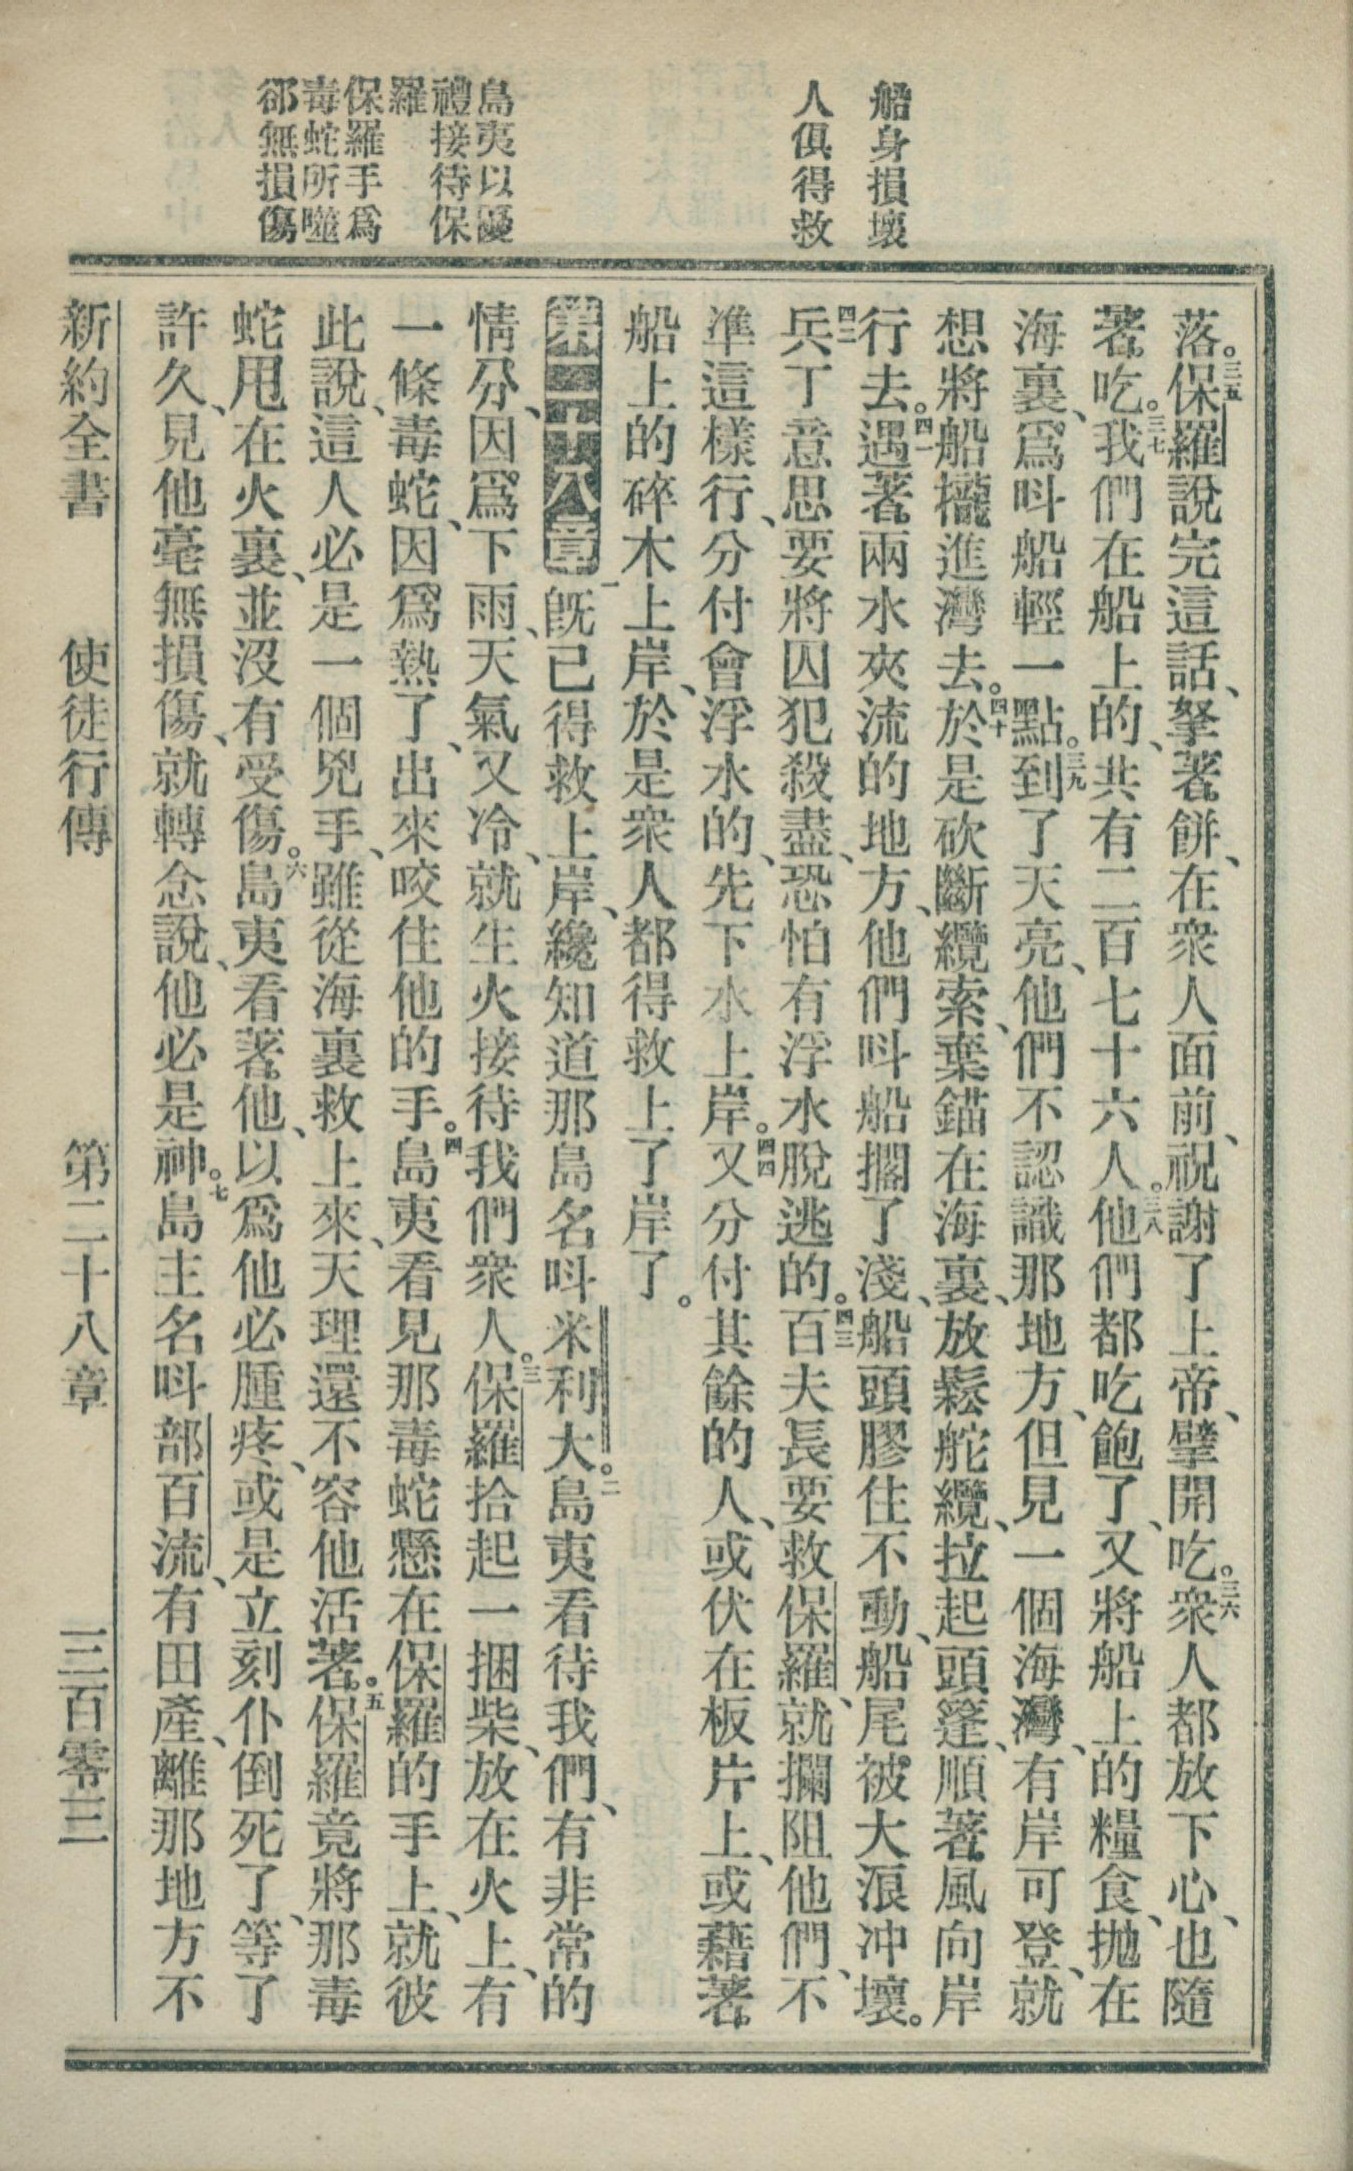 船身損壞
人俱得救
島夷以優
禮接待保
羅
保羅手爲
毒蛇所噬
郤無損傷
落。三五保羅說完這話、拏著餅、在衆人面前、祝謝了上帝、擘開吃。三六衆人都放下心、也隨
著吃。三七我們在船上的、共有二百七十六人。三八他們都吃飽了、又將船上的糧食、拋在
海裏、爲呌船輕一點。三九到了天亮、他們不認識那地方、但見一個海灣、有岸可登、就
想將船攏進灣去。四十於是砍斷纜索、棄錨在海裏、放鬆舵纜、拉起頭篷、順著風向岸
行去。四一遇著兩水夾流的地方、他們呌船擱了淺、船頭膠住不動、船尾被大浪冲壞。
四二兵丁意思要將囚犯殺盡、恐怕有浮水脫逃的。四三百夫長要救保羅、就攔阻他們、不
準這樣行、分付會浮水的、先下水上岸。四四又分付其餘的人、或伏在板片上、或藉著
船上的碎木上岸、於是衆人都得救上了岸了。
第二十八章 一旣已得救上岸、纔知道那島名呌米利大。二島夷看待我們、有非常的
情分、因爲下雨、天氣又冷、就生火接待我們衆人。三保羅拾起一捆柴、放在火上、有
一條毒蛇、因爲熱了、出來咬住他的手。四島夷看見那毒蛇懸在保羅的手上、就彼
此說、這人必是一個兇手、雖從海裏救上來、天理還不容他活著。五保羅竟將那毒
蛇甩在火裏、並沒有受傷。六島夷看著他、以爲他必腫疼、或是立刻仆倒死了、等了
許久、見他毫無損傷、就轉念說、他必是神。七島主名呌部百流、有田產、離那地方不
新約全書 使徒行傳 第二十八章 三百零三